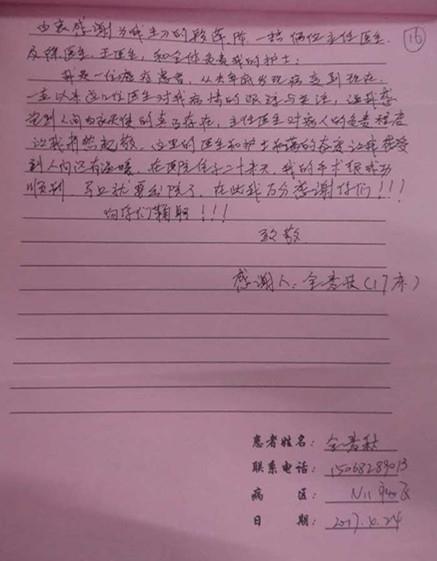 16
由衷感谢为我主刀的 一 俩位主任医生
及 医生、王医生，和全体负责我的护士：
我是一位癌症患者，从去年前发现病变到现在
一直以来这几位医生对我病情的跟踪与关注，让我感
觉到人间白衣天使的真正存在，主任医生对病人的负责程度
让我肃然起敬，这里的医生和护士和蔼的态度让我感受
到人间还有温暖，在医院住了二十来天，我的手术很成功
顺利 马上就要出院了，在此我万分感谢你们！！！
向你们鞠躬！！！
致敬
感谢人：全 (17床)
患者姓名：全
联系电话：15068289013
病 区：N11 病区
日 期：2017. .24